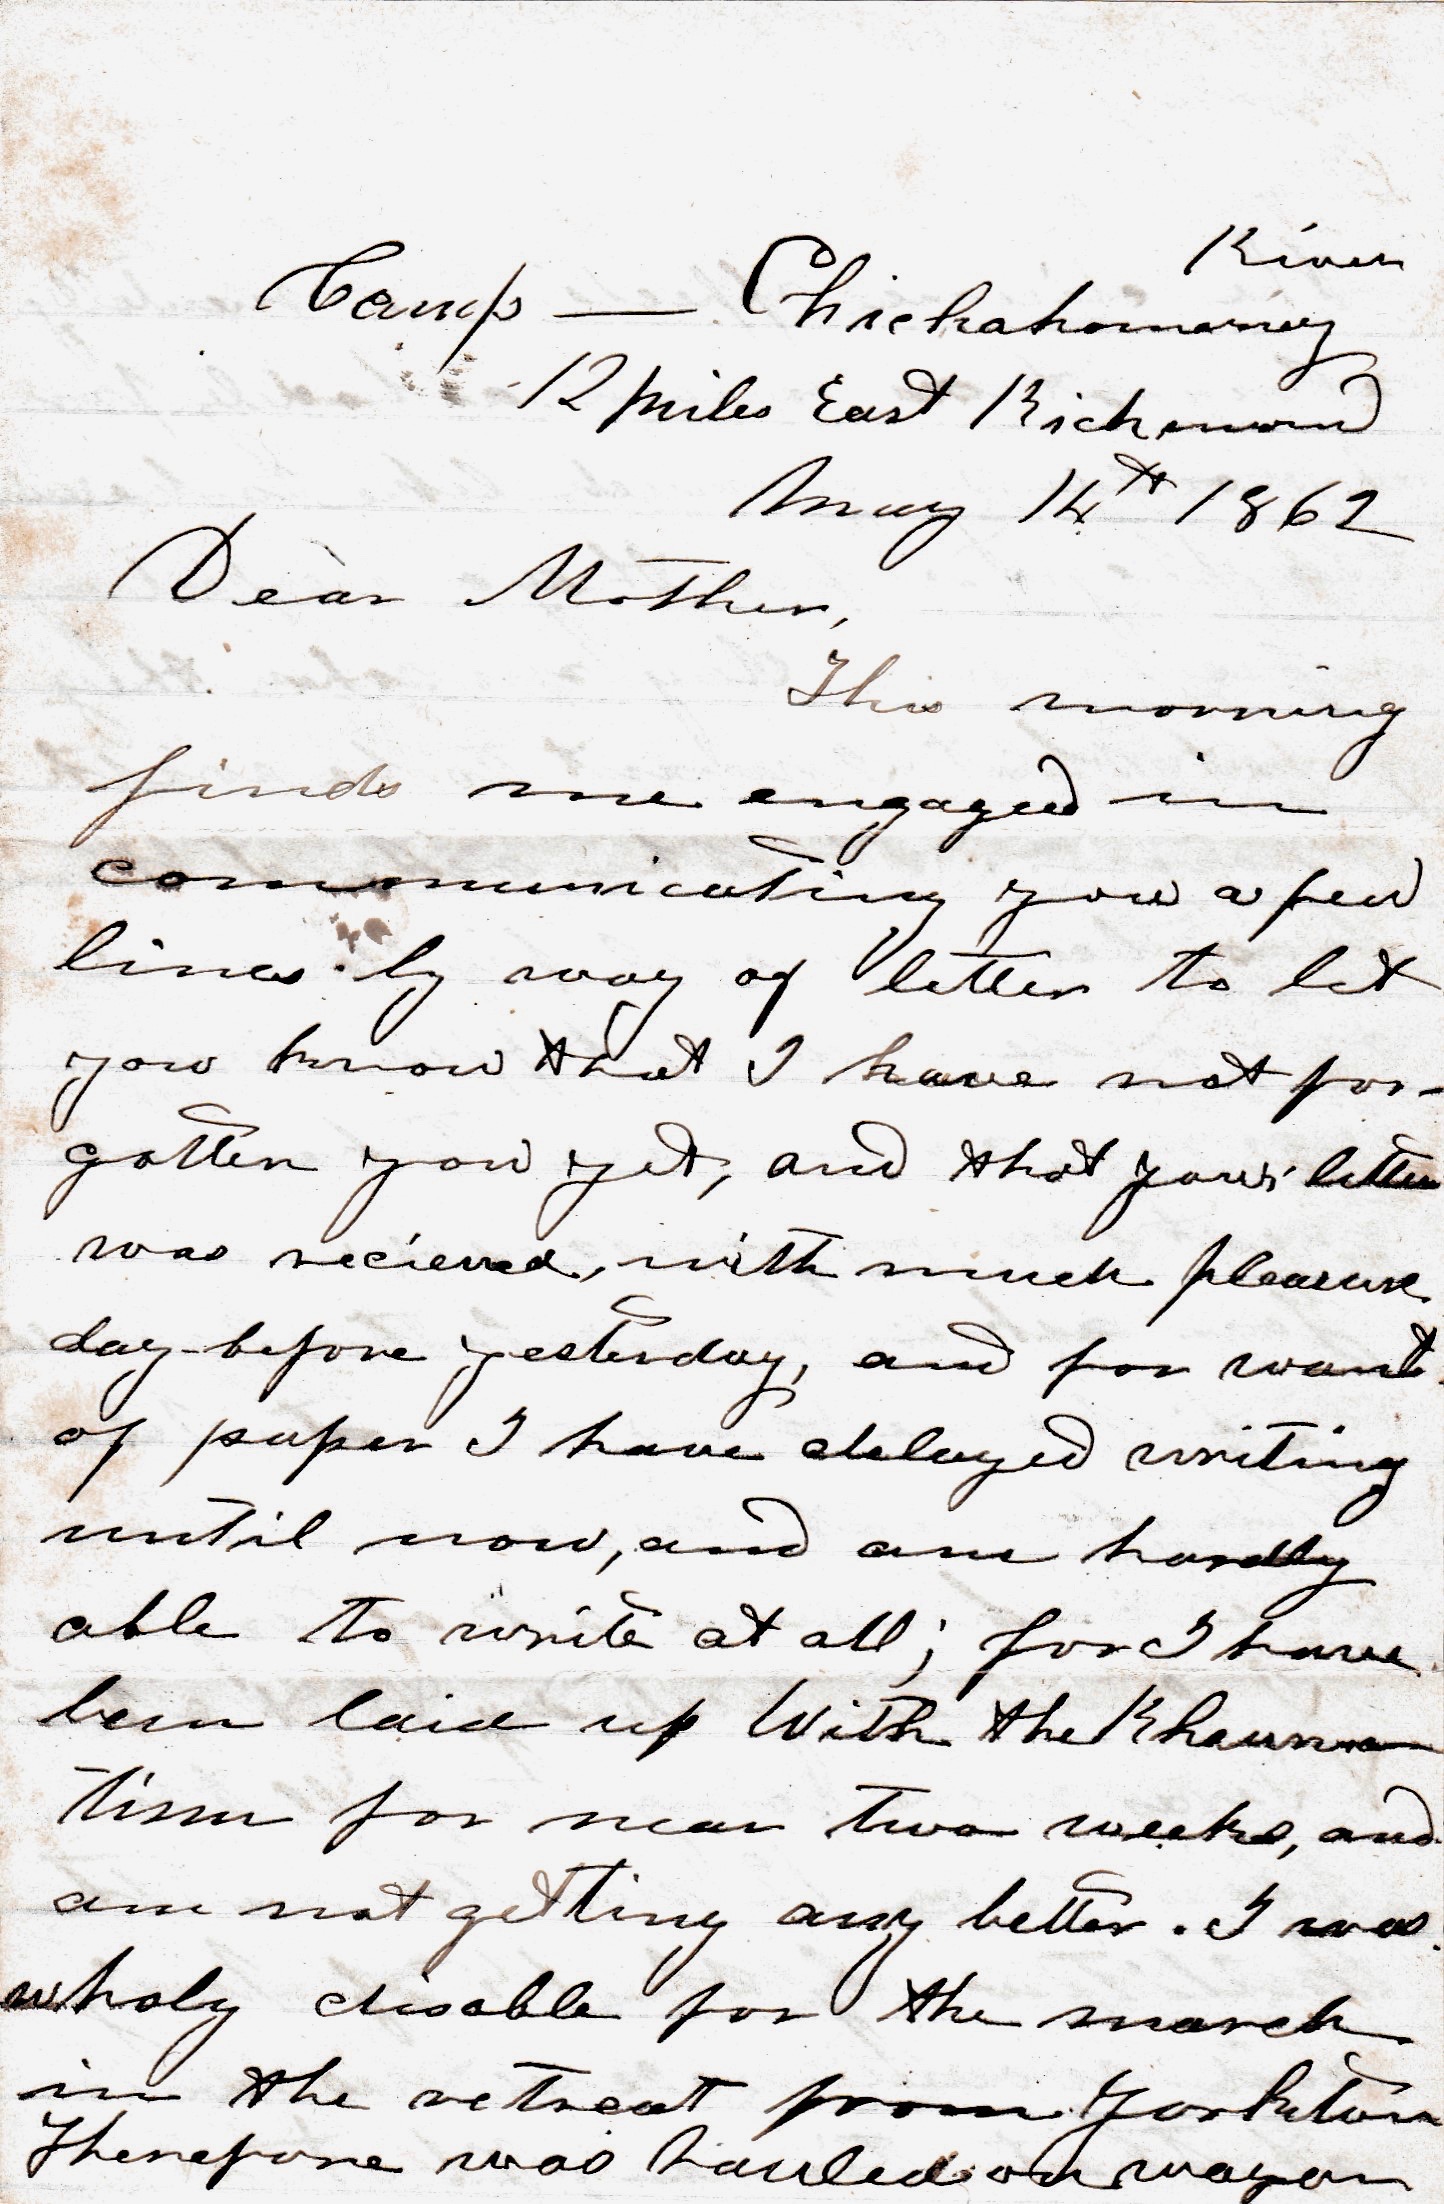 River
Camp — Chickahominey
12 miles East Richmond
May 14th 1862
Dear Mother,
This morning
finds me engaged in
communicating you a few
lines by way of letter to let
you know that I have not for-
gotten you yet, and that your letter
was recieved, with much pleasure
day-before yesterday, and for want
of paper I have delayed writing
until now, and am hardly
able to write at all; for I have
been laid up With the Rheuma
tism for near two weeks, and
am not getting any better. I was
wholy disable for the march
in the retreat from Yorktown
Therefore was hauled on wagon